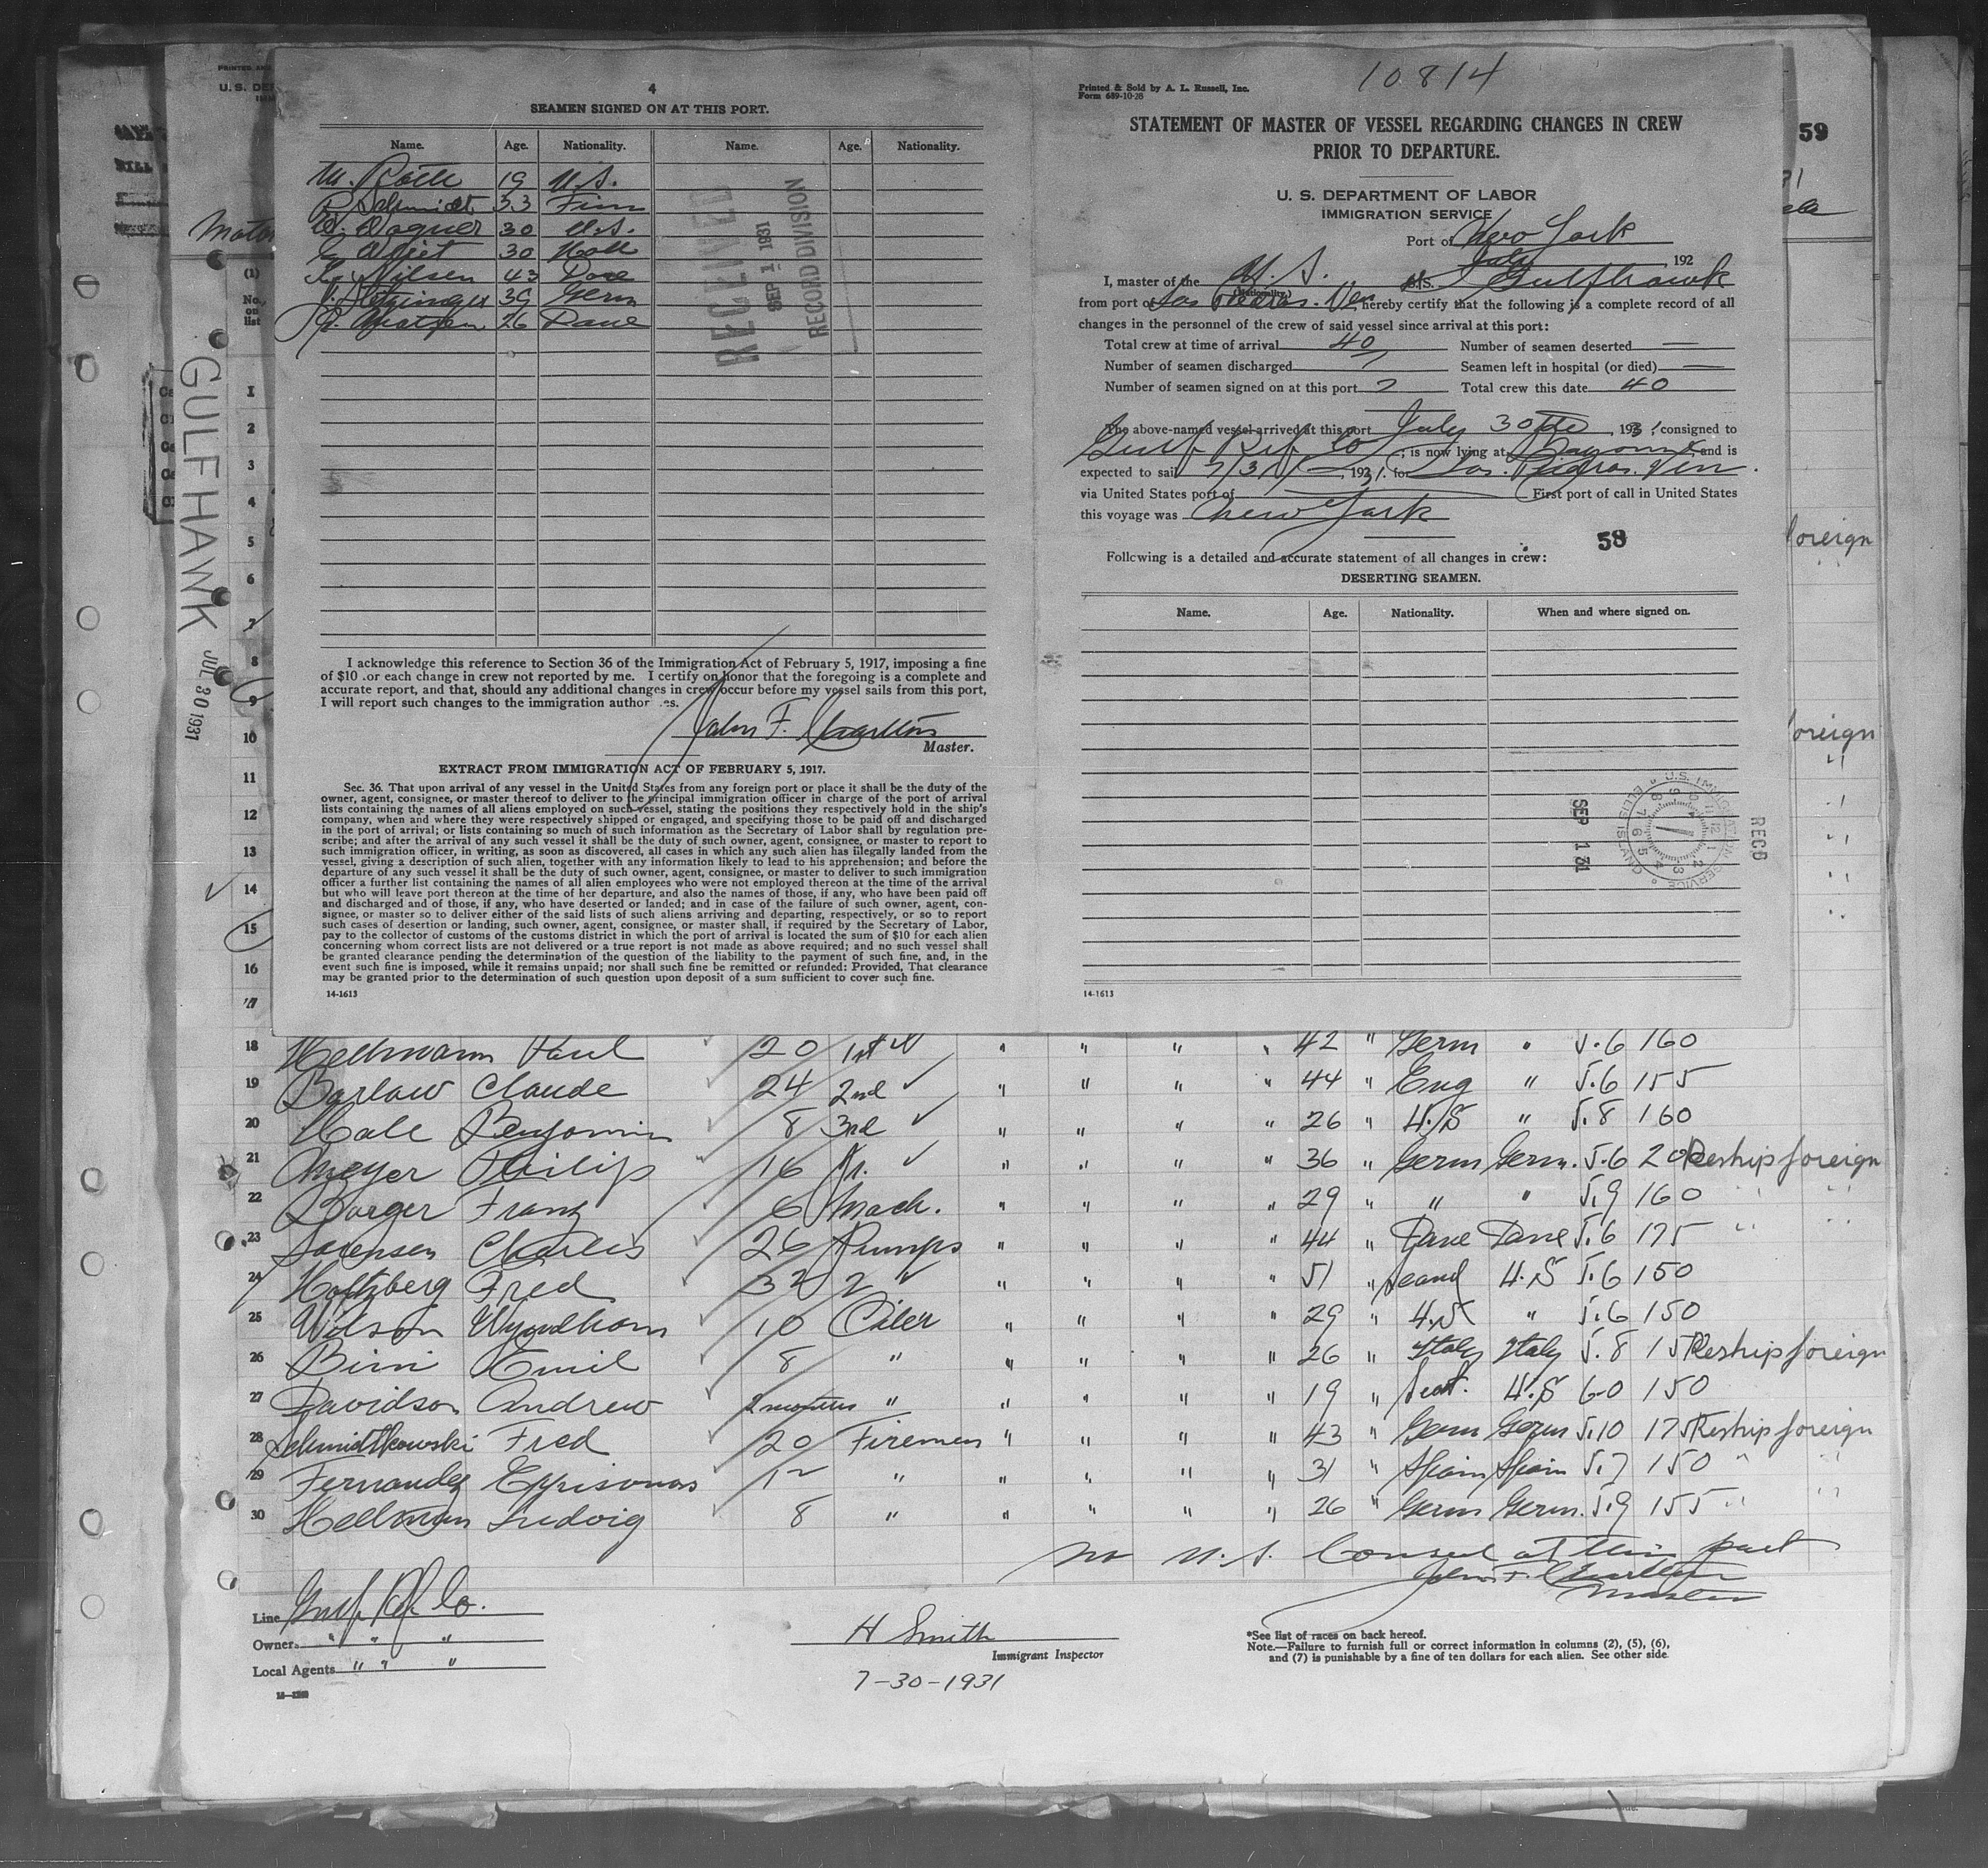 4
SEAMEN SIGNED ON AT THIS PORT.
Name. Age. Nationality. Name. Age. Nationality.
M. 19 U.S.
Schmidt 33 Finn
Wagner 30 U.S.
30 Holl
Nilsen 43 Dane
39 Germ
26 Dane
RECEIVED
SEP 1 1931
RECORD DIVISION
I acknowledge this reference to Section 36 of the Immigration Act of February 5, 1917, imposing a fine
of $10 for each change in crew not reported by me. I certify on honor that the foregoing is a complete and
accurate report, and that, should any additional changes in crew occur before my vessel sails from this port,
I will report such changes to the immigration authorities.
John F. Charlton
Master.
EXTRACT FROM IMMIGRATION ACT OF FEBRUARY 5, 1917.
Sec. 36. That upon arrival of any vessel in the United States from any foreign port or place it shall be the duty of the
owner, agent, consignee, or master thereof to deliver to the principal immigration officer in charge of the port of arrival
lists containing the names of all aliens employed on such vessel, stating the positions they respectively hold in the ship's
company, when and where they were respectively shipped or engaged, and specifying those to be paid off and discharged
in the port of arrival; or lists containing so much of such information as the Secretary of Labor shall by regulation pre-
scribe; and after the arrival of any such vessel it shall be the duty of such owner, agent, consignee, or master to report to
such immigration officer, in writing, as soon as discovered, all cases in which any such alien has illegally landed from the
vessel, giving a description of such alien, together with any information likely to lead to his apprehension; and before the
departure of any such vessel it shall be the duty of such owner, agent, consignee, or master to deliver to such immigration
officer a further list containing the names of all alien employees who were not employed thereon at the time of the arrival
but who will leave port thereon at the time of her departure, and also the names of those, if any, who have been paid off
and discharged and of those, if any, who have deserted or landed; and in case of the failure of such owner, agent, con-
signee, or master so to deliver either of the said lists of such aliens arriving and departing, respectively, or so to report
such cases of desertion or landing, such owner, agent, consignee, or master shall, if required by the Secretary of Labor,
pay to the collector of customs of the customs district in which the port of arrival is located the sum of $10 for each alien
concerning whom correct lists are not delivered or a true report is not made as above required; and no such vessel shall
be granted clearance pending the determination of the question of the liability to the payment of such fine, and, in the
event such fine is imposed, while it remains unpaid; nor shall such fine be remitted or refunded: Provided, That clearance
may be granted prior to the determination of such question upon deposit of a sum sufficient to cover such fine.
14-1613
10814
Printed & Sold by A. L. Russell, Inc.
Form 689-10-28
STATEMENT OF MASTER OF VESSEL REGARDING CHANGES IN CREW
PRIOR TO DEPARTURE.
U. S. DEPARTMENT OF LABOR
IMMIGRATION SERVICE
Port of New York
July, 192
I, master of the U.S. (Nationality.) S.S. Gulfhawk
from port of Las Piedras. Ven hereby certify that the following is a complete record of all
changes in the personnel of the crew of said vessel since arrival at this port:
Total crew at time of arrival 40 Number of seamen deserted —
Number of seamen discharged 7 Seamen left in hospital (or died) —
Number of seamen signed on at this port 7 Total crew this date 40
The above-named vessel arrived at this port July 30th, 1931 consigned to
Gulf Ref Co; is now lying at Bayonne and is
expected to sail 7/31/, 1931. for Las. Piedras. Ven.
via United States port of — First port of call in United States
this voyage was New York
58
Following is a detailed and accurate statement of all changes in crew:
DESERTING SEAMEN.
Name. Age. Nationality. When and where signed on.
U.S. IMMIGRATION SERVICE ELLIS ISLAND
REC'D
SEP 1 31
14-1613
59
U. S. DE
Motor
(1)
No.
on
list
GULFHAWK
JUL 30 1931
1
2
3
4
5
6
7
8
9
10
11
12
13
14
15
16
17
foreign
foreign
18 Hellmann Paul 20 1st " " " " " 42 " Germ " 5.6 160
19 Barlow Claude 24 2nd " " " " 44 " Eng " 5.6 155
20 Hale Benjamin 8 3rd " " " " 26 " U.S " 5.8 160
21 Meyer Philip 16 Jr. " " " " 36 " Germ Germ. 5.6 200 Reship foreign
22 Barger Franz 6 Mach. " " " " 29 " " " 5.9 160 " "
23 Sorensen Charles 26 Pumps " " " " 44 " Dane Dane 5.6 175 " "
24 Holtzberg Fred 32 2 " " " " " 51 " Scand U.S 5.6 150
25 Wilson Wyndham 10 Oiler " " " " 29 " U.S " 5.6 150
26 Bini Emil 8 " " " " " 26 " Italy Italy 5.8 15 Reship foreign
27 Davidson Andrew 2 months " " " " " 19 " Scot. U.S 6-0 150
28 Schmidtkowski Fred 20 Firemen " " " " 43 " Germ Germ 5.10 175 Reship foreign
29 Fernandez 12 " " " " " 31 " Spain Spain 5.7 150 " "
30 Hellman Ludwig 8 " " " " " 26 " Germ Germ. 5.9 155 " "
No U.S. Consul at this port
John F. Charlton
Master
Line Gulf Ref Co.
Owners " " "
Local Agents " " "
H Smith
Immigrant Inspector
7-30-1931
*See list of races on back hereof.
Note.—Failure to furnish full or correct information in columns (2), (5), (6),
and (7) is punishable by a fine of ten dollars for each alien. See other side.